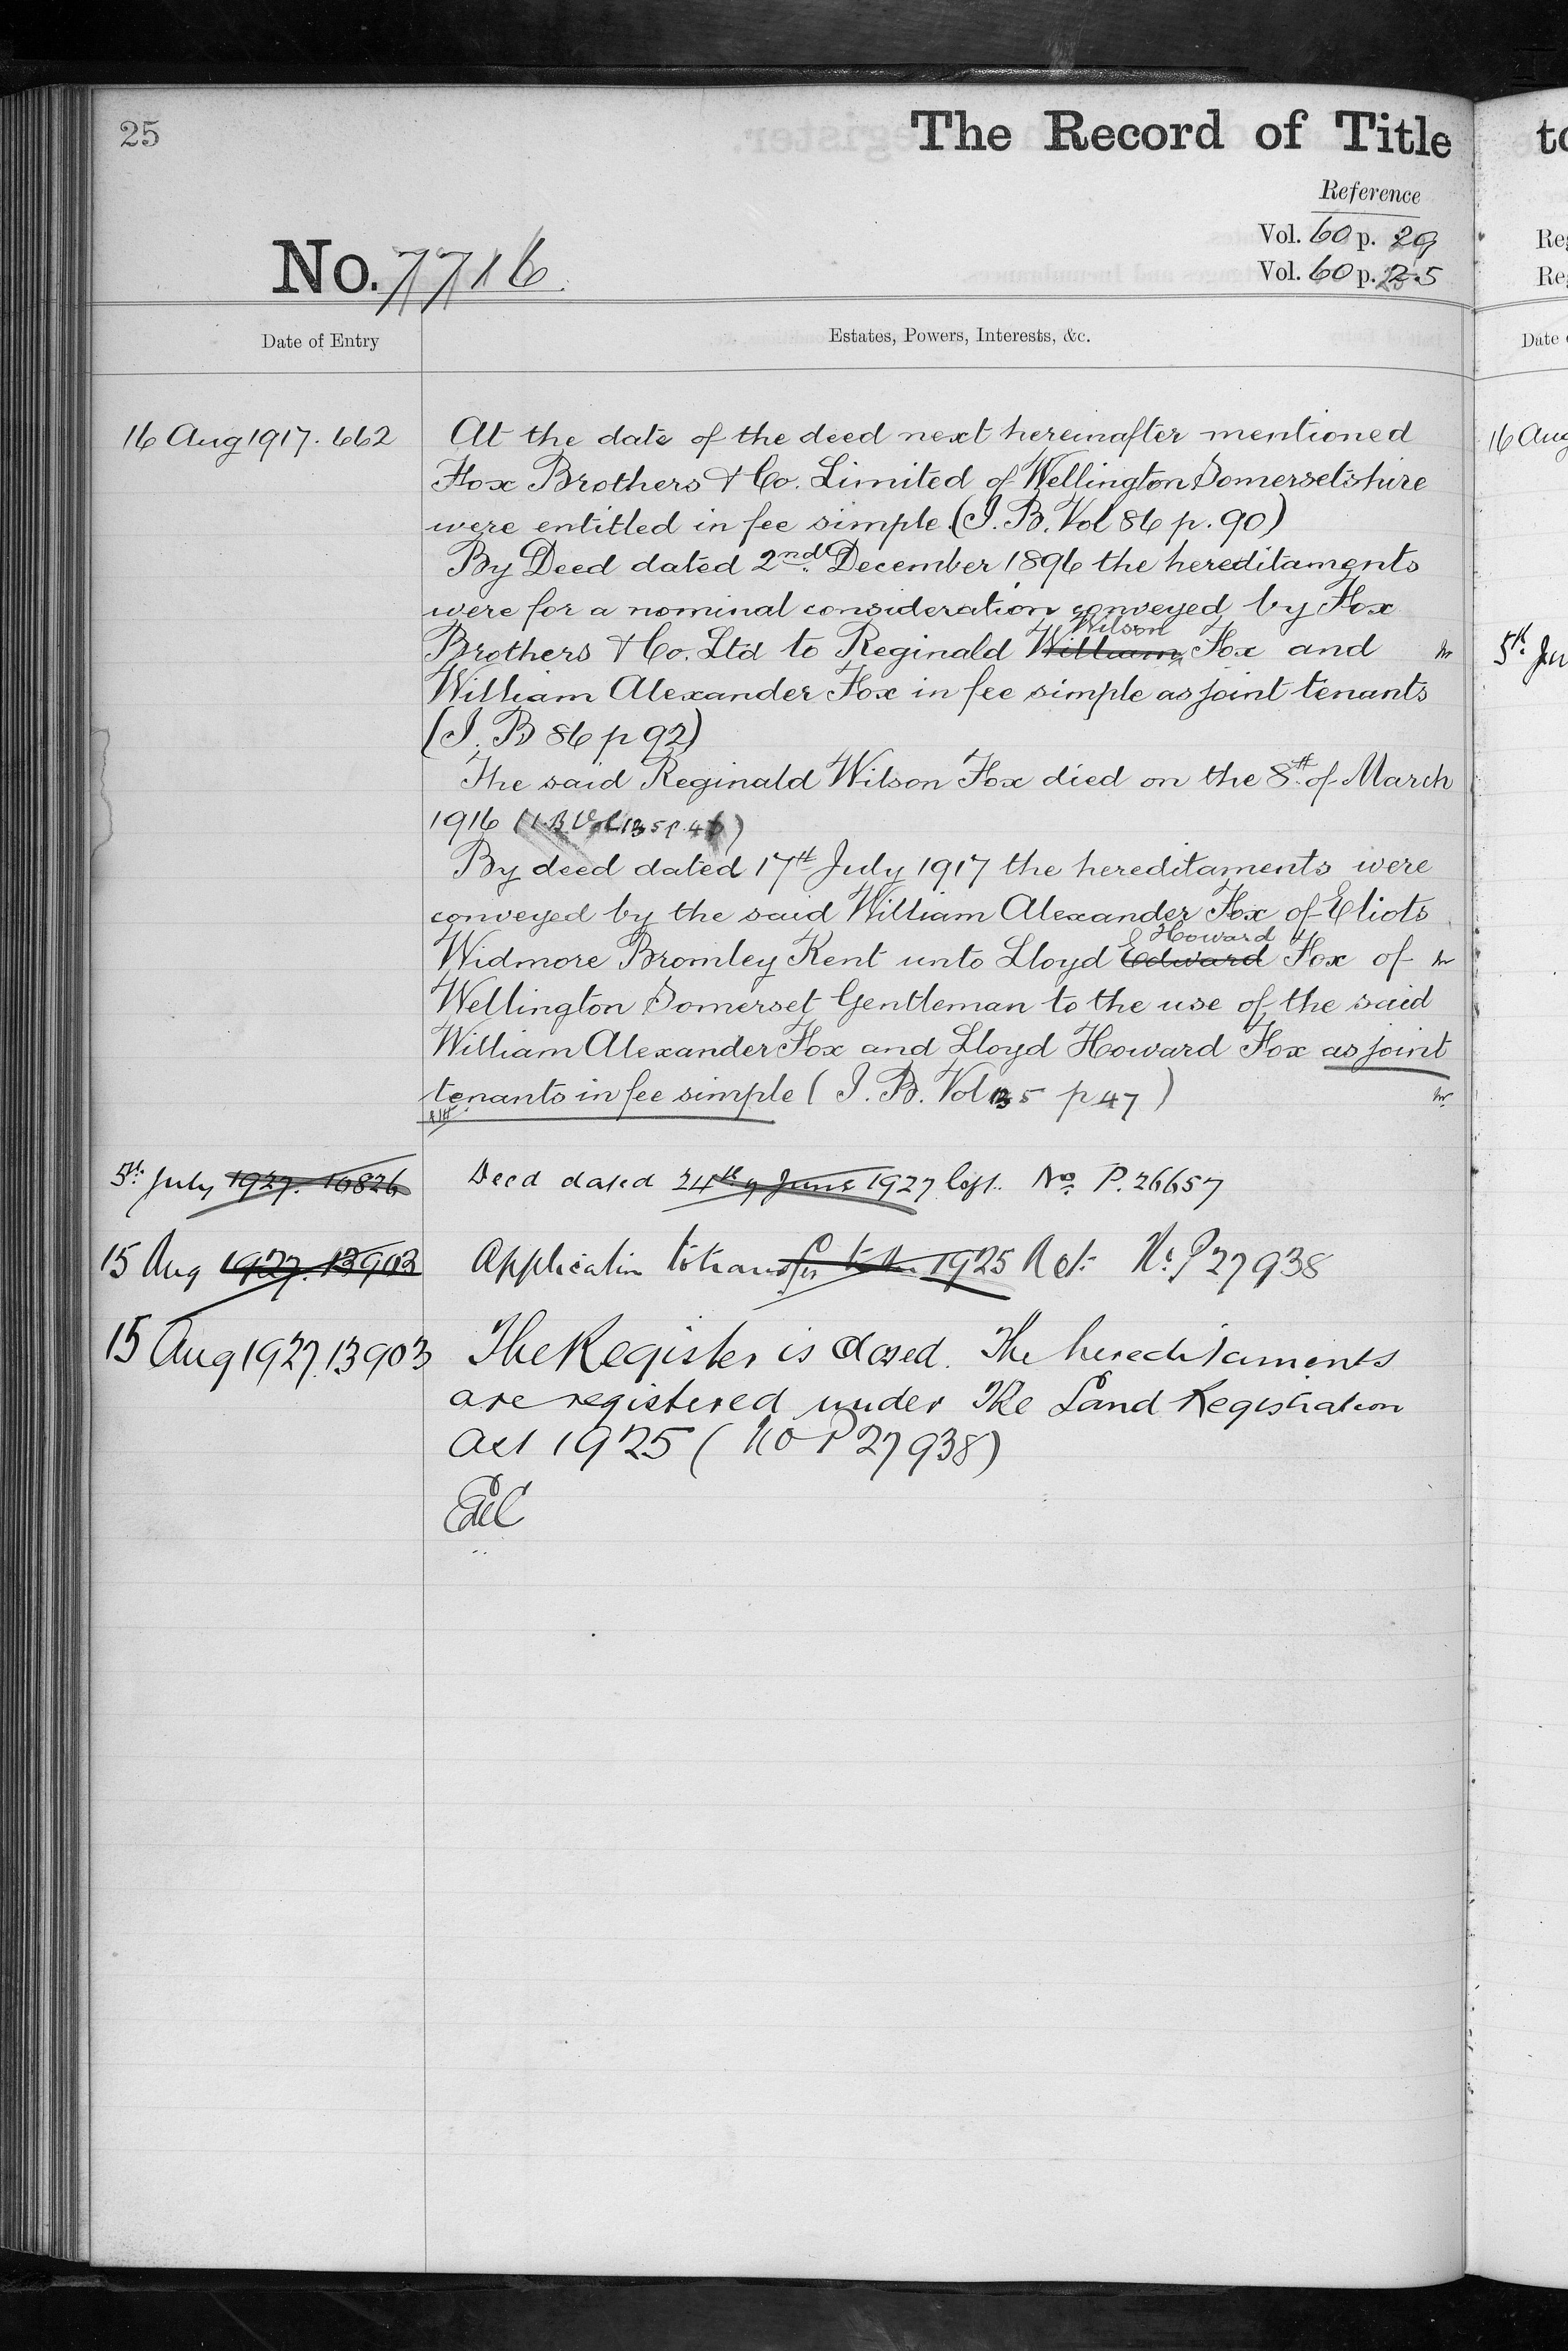 25
The Record of Title
Reference
Vol. 60 p. 29
Vol. 60 p. 25
No. 7716
Date of Entry
Estates, Powers, Interests, &c.
16 Aug 1917. 662
At the date of the deed next hereinafter mentioned
Fox Brothers & Co. Limited of Wellington Somersetshire
were entitled in fee simple. (I. B. Vol 86 p. 90)
By Deed dated 2nd. December 1896 the hereditaments
were for a nominal consideration conveyed by Fox
Wilson
Brothers & Co. Ltd to Reginald William Fox and
William Alexander Fox in fee simple as joint tenants
(I. B 86 p 92)
The said Reginald Wilson Fox died on the 8th. of March
1916 (I.B Vol 135 p. 46)
By deed dated 17th July 1917 the hereditaments were
conveyed by the said William Alexander Fox of Eliots
Howard
Widmore Bromley Kent unto Lloyd Edward Fox of
Wellington Somerset Gentleman to the use of the said
William Alexander Fox and Lloyd Howard Fox as joint
tenants in fee simple ( I. B. Vol 135 p 47 )
5th. July 1927. 10826
Deed dated 24th of June 1927 left. No. P. 26657
15 Aug 1927. 13903
Application to transfer to the 1925 Act. No. P 27938
15 Aug 1927. 13903
The Register is closed. The hereditaments
are registered under The Land Registration
Act 1925 ( No P 27938)
to
Reg
Reg
Date
16 Aug
5th. Ju